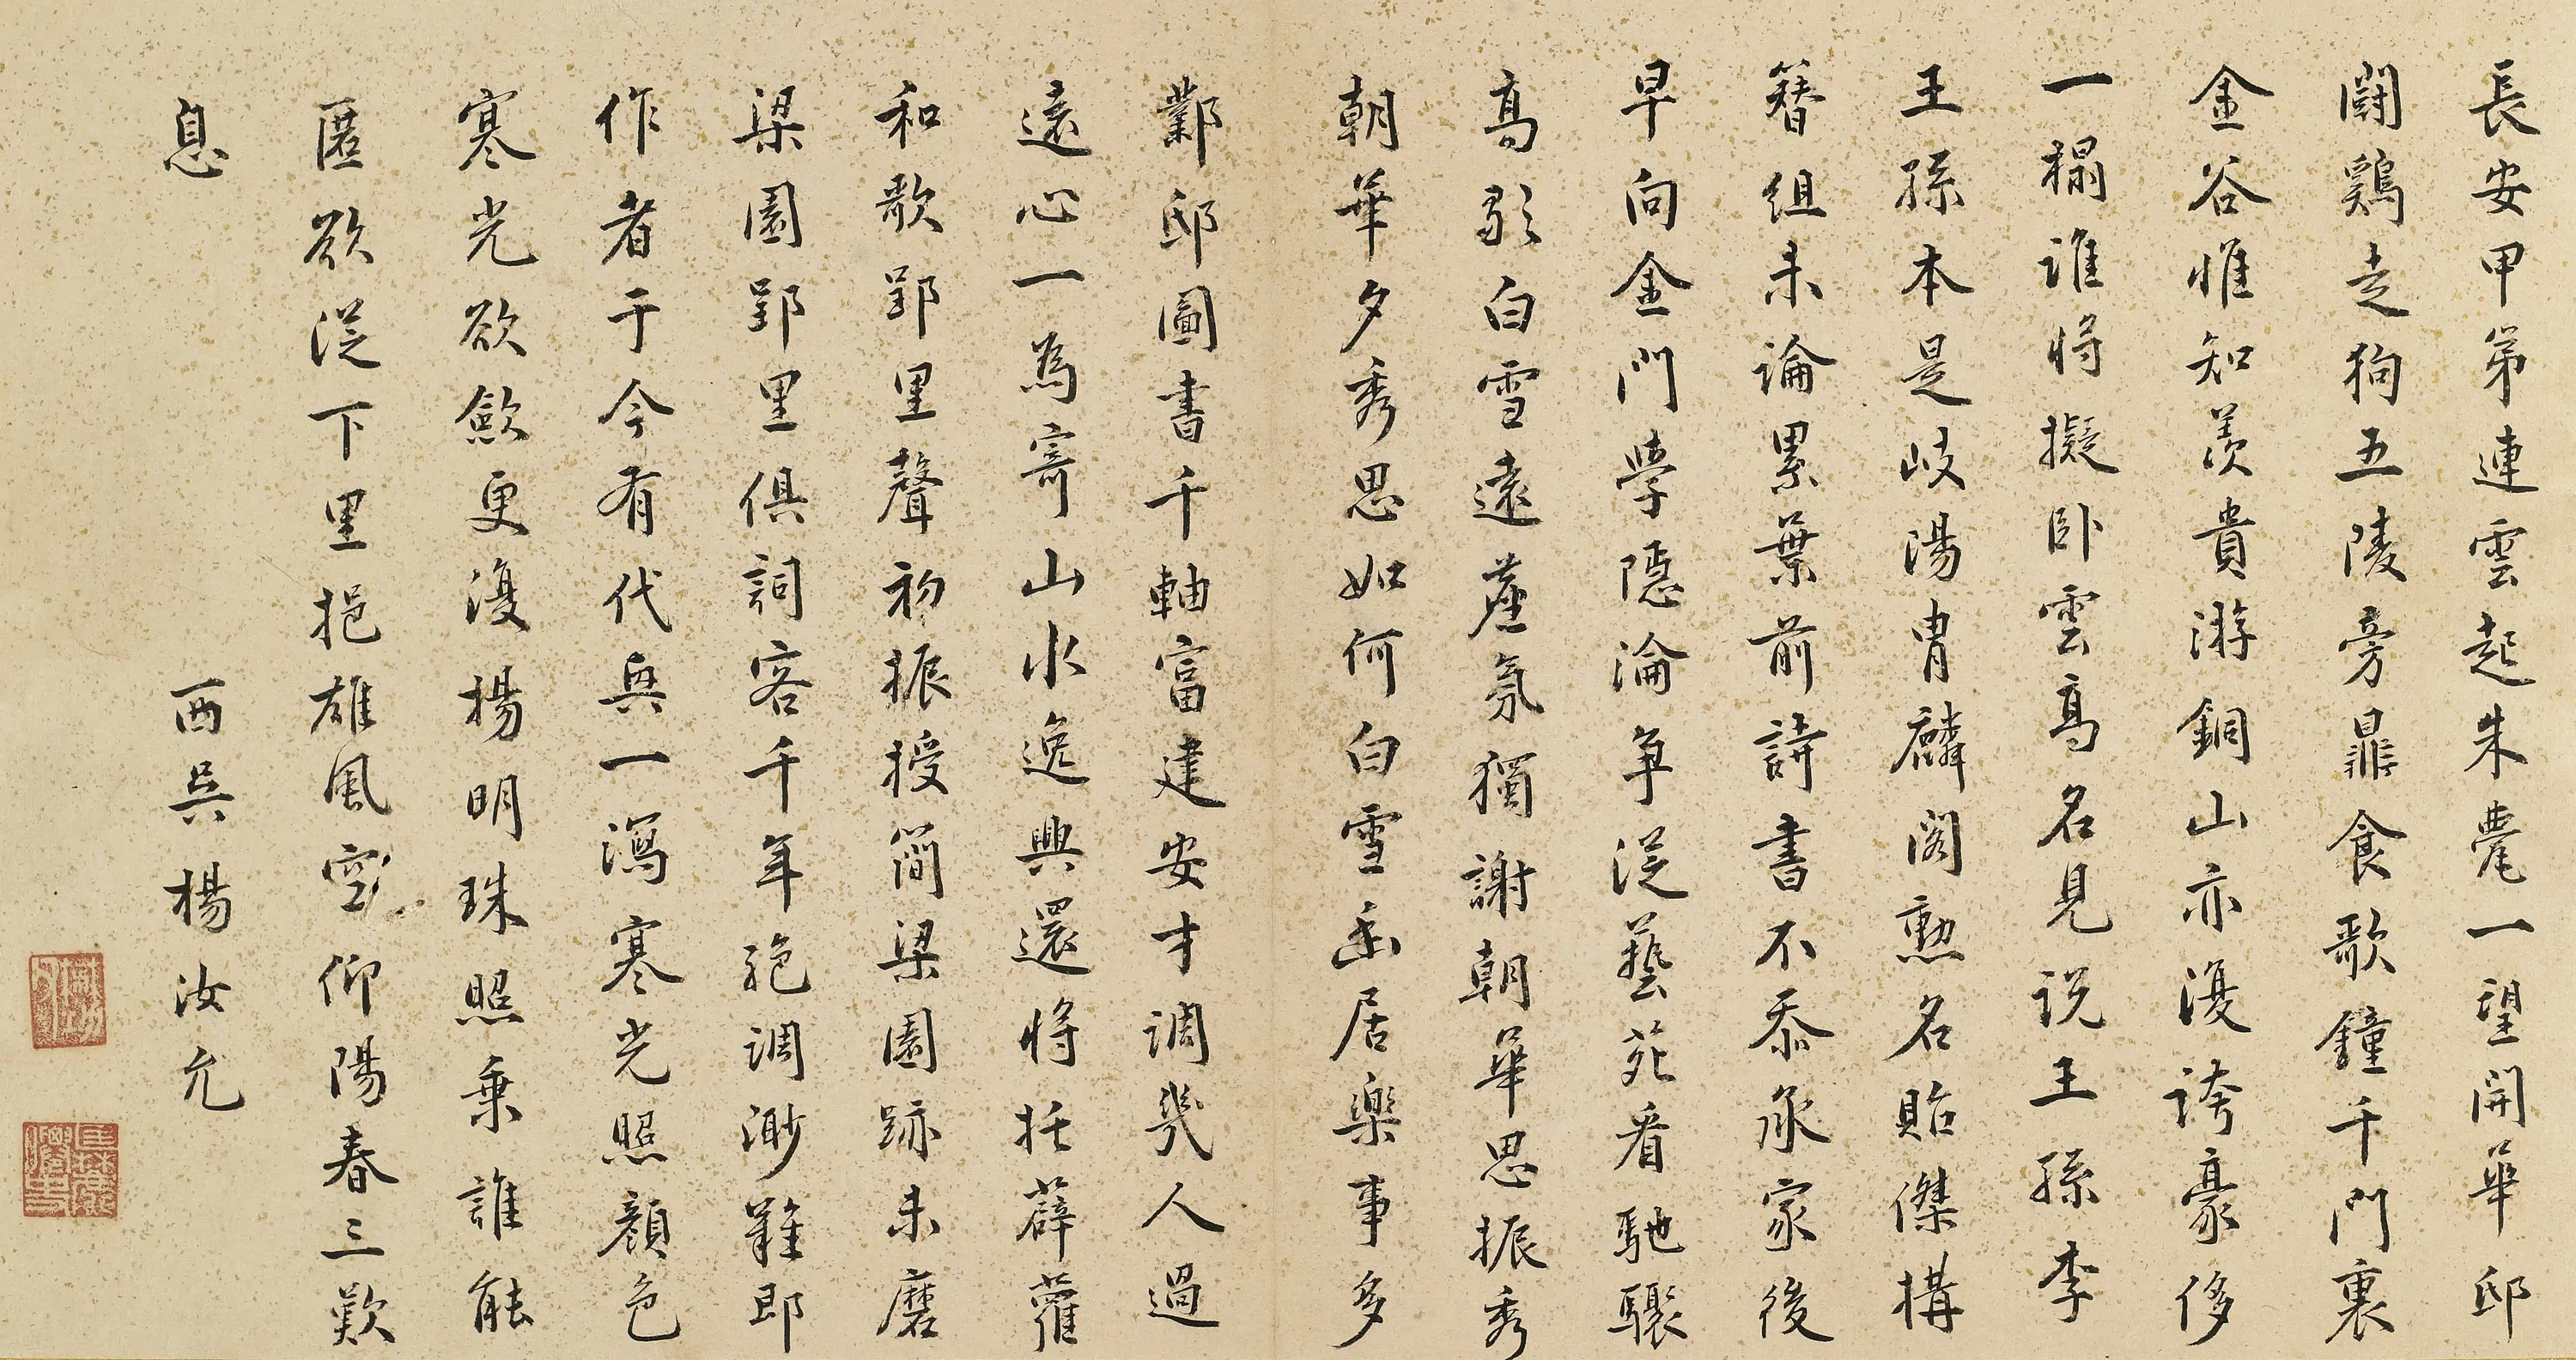 長安甲第連雲起朱甍一望開華邸
鬪鷄走狗五陵旁鼎食歌鐘千門裏
金谷惟知羨貴游銅山亦復誇豪侈
一榻誰將擬臥雲高名見說王孫李
王孫本是岐陽胄麟閣勲名貽傑構
簪組未論累葉前詩書不忝承家後
早向金門學隱淪爭從藝苑看馳驟
高歌白雪遠塵氛獨謝朝華思振秀
朝華夕秀思如何白雪幽居樂事多
鄴邸圖書千軸富建安才調幾人過
遠心一為寄山水逸興還將托薜蘿
和歌郢里聲初振授簡梁園跡未磨
梁園郢里俱詞客千年絕調渺難即
作者于今有代興一瀉寒光照顏色
寒光欲斂更復揚明珠照乘誰能
匿欲從下里挹雄風空仰陽春三歎
息
西吳楊汝允